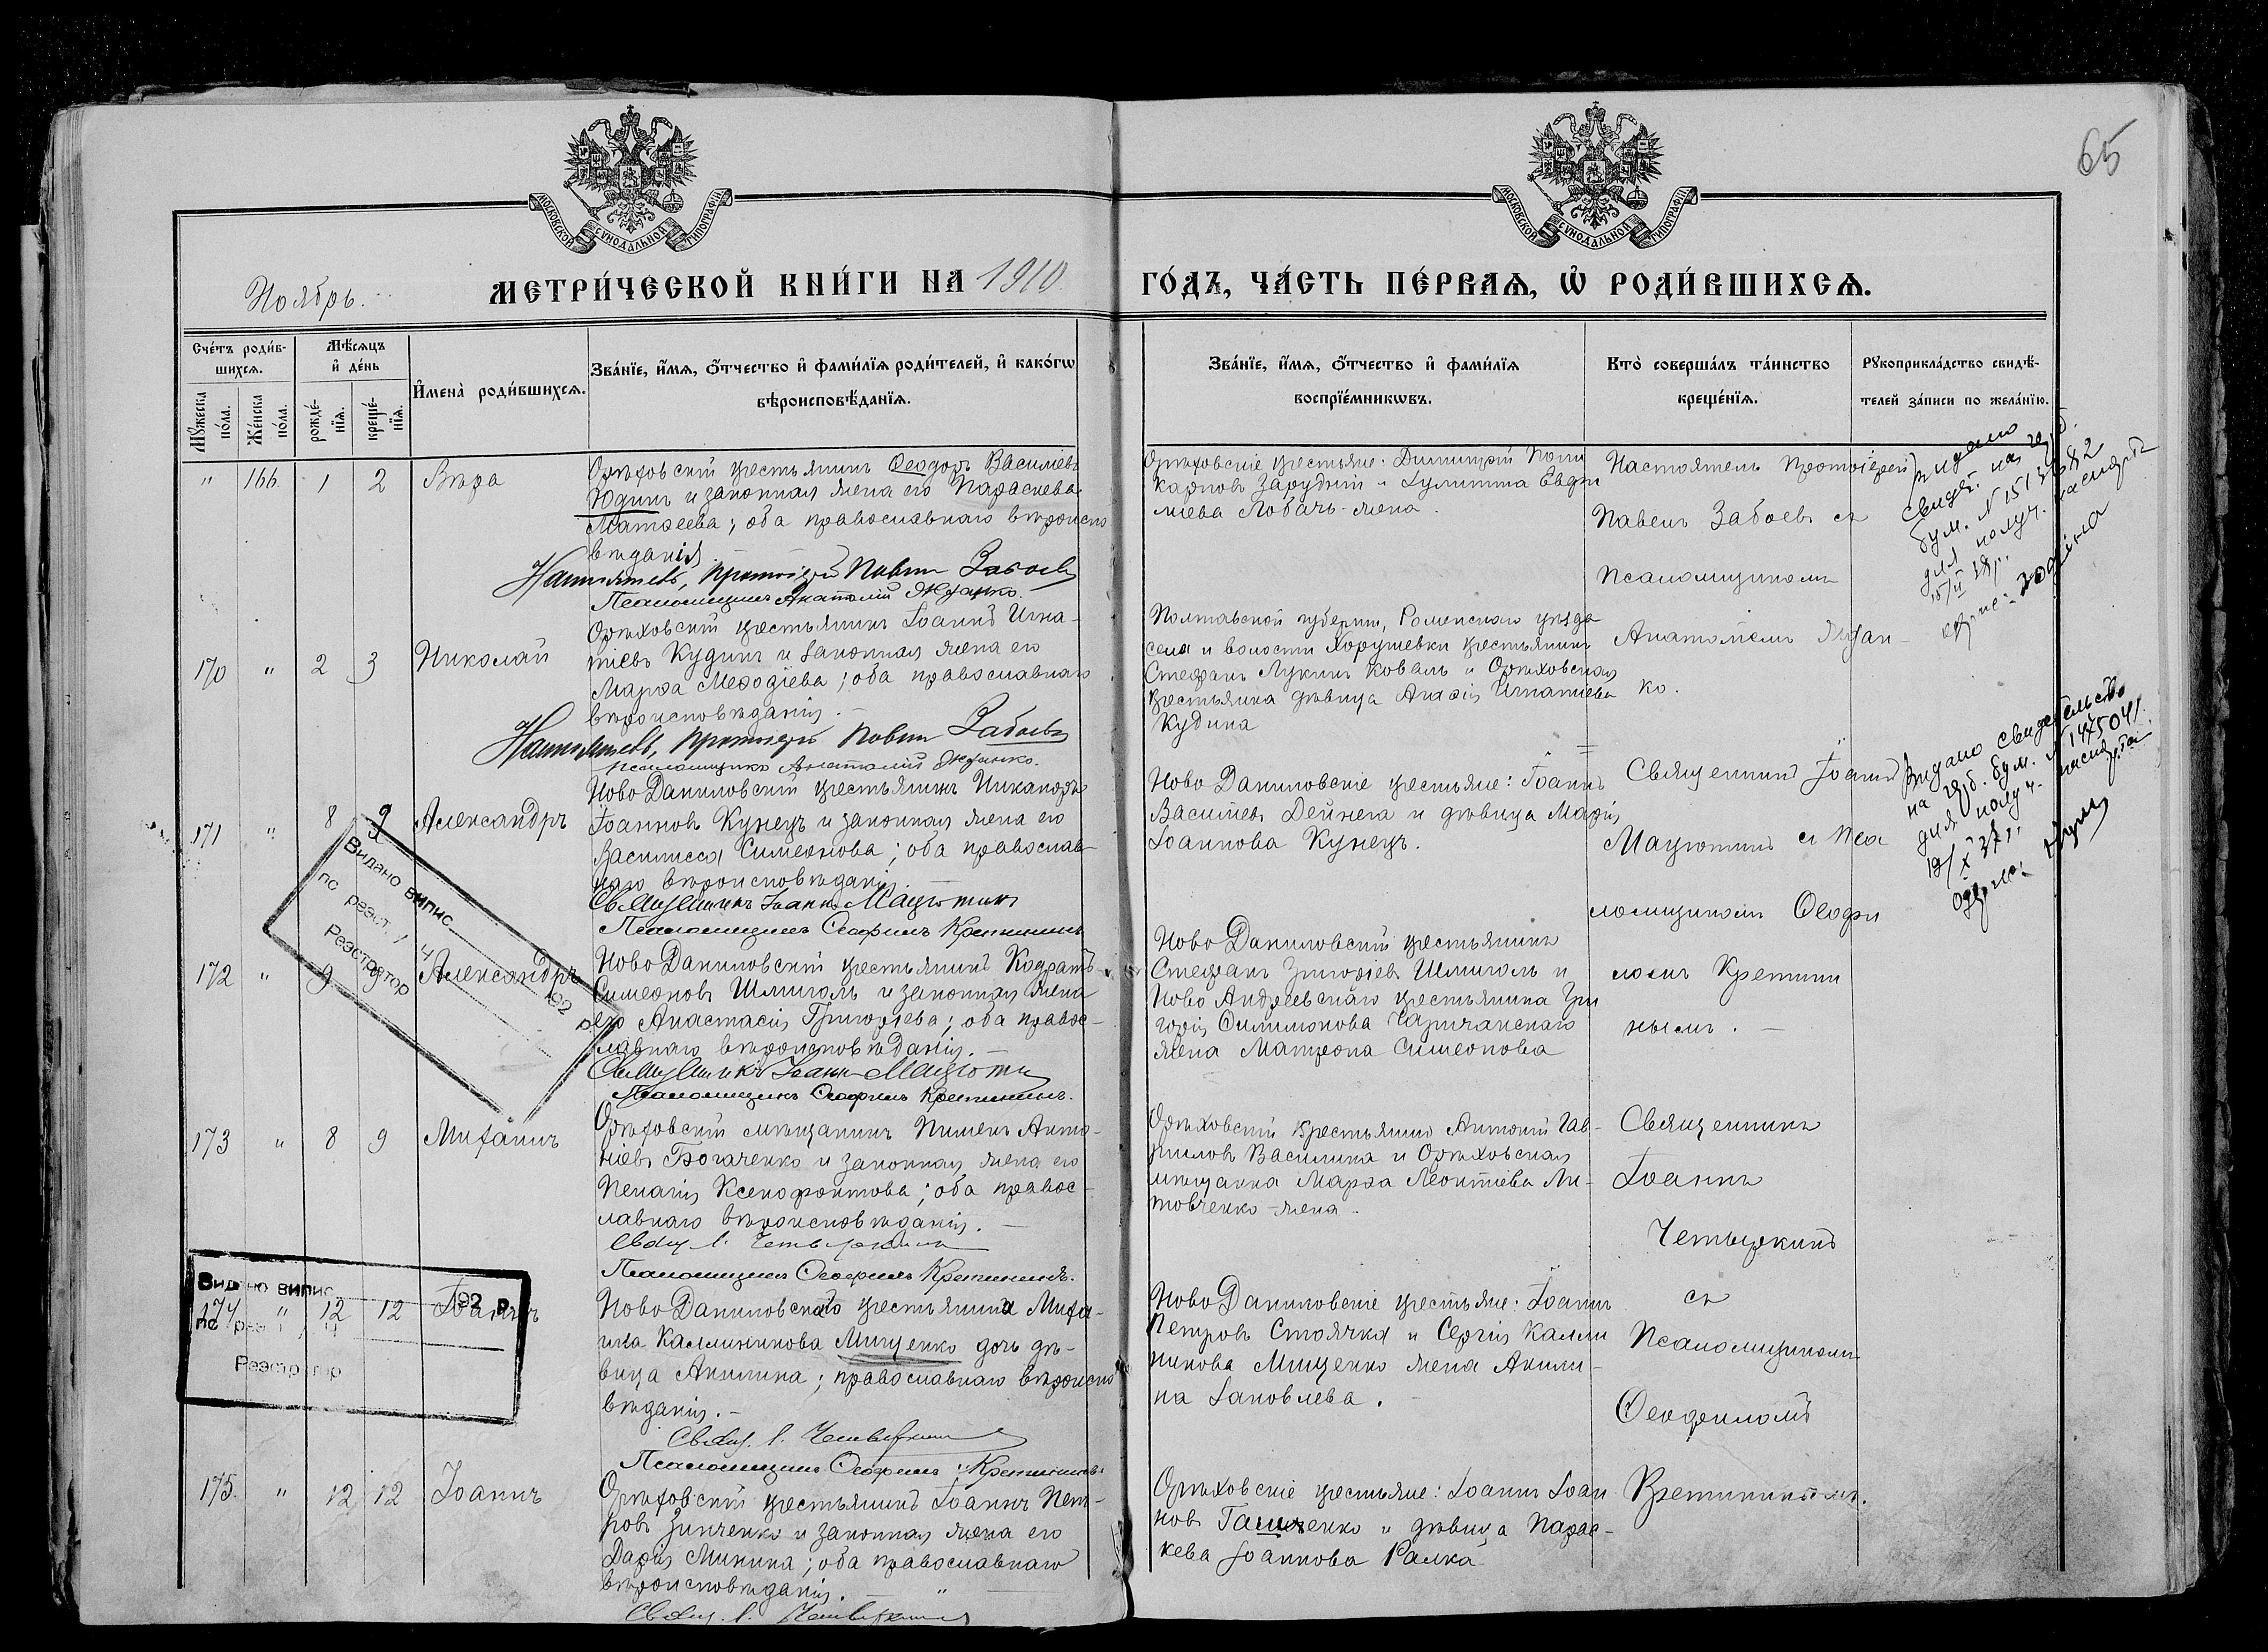 65
МОСКОВСКОЙ СѴНОДАЛЬНОЙ ТИПОГРАФІИ
МОСКОВСКОЙ СѴНОДАЛЬНОЙ ТИПОГРАФІИ
Ноябрь.
МЕТРИ́ЧЕСКОЙ КНИ́ГИ НА 1910
ГО́ДЪ, ЧА́СТЬ ПЕ́РВАѦ, Ѡ҆ РОДИ́ВШИХСѦ.
Сче́тъ роди́в-
шихсѧ.
Мѣ́сѧцъ
и҆ де́нь
Мꙋ́жеска по́ла.
Же́нска по́ла.
рожде́-
нїѧ.
креще́-
нїѧ.
И҆мена̀ роди́вшихсѧ.
Зва́нїе, и҆́мѧ, ѻ҆́тчество и҆ фами́лїѧ роди́телей, и҆ како́гѡ
вѣроисповѣ́данїѧ.
Зва́нїе, и҆́мѧ, ѻ҆́тчество и҆ фами́лїѧ
воспрїе́мникѡвъ.
Кто̀ соверша́лъ та́инство
креще́нїѧ.
Рꙋкоприкла́дство свидѣ́-
телей за́писи по жела́нїю.
" 166 1 2 Вѣра
Орѣховскій крестьянинъ Ѳеодоръ Василіевъ
Юдинъ и законная жена его Параскева
Матѳеева; оба православнаго вѣроиспо
вѣданія
Настоятель, протоіерей Павелъ Забоевъ
Псаломщикъ Анатолій Жданко.
Орѣховскіе крестьяне: Димитрій Поли
карповъ Зарудній и Іулитта Евфи
міева Лобачъ-жена.
Настоятель Протоіерей
Павелъ Забоевъ съ
Псаломщикомъ
Анатоліемъ Ждан-
ко.
Видано
свидоц. на герб.
бум. N 1513682
для получ. паспорта
15/II 28 р.
170 " 2 3 Николай
Орѣховскій крестьянинъ Іоаннъ Игна-
тіевъ Кудинъ и законная жена его
Марѳа Меѳодіева; оба православнаго
вѣроисповѣданія.
Настоятель, протоіерей Павелъ Забоевъ
псаломщикъ Анатолій Жданко.
Полтавской губерніи, Роменскаго уѣзда
села и волости Хорушевки крестьянинъ
Стефанъ Лукинъ Коваль и Орѣховская
крестьянка дѣвица Анѳія Игнатіева
Кудина
171 " 8 9 Александръ
Ново Даниловскій крестьянинъ Никаноръ
Іоанновъ Кунецъ и законная жена его
Василисса Симеонова; оба православ-
наго вѣроисповѣданія
Священникъ Іоаннъ Мацютинъ
Псаломщикъ Ѳеофилъ Кретининъ
Ново Даниловскіе крестьяне: Іоаннъ
Василіевъ Дейнега и дѣвица Марія
Іоаннова Кунецъ.
Священникъ Іоаннъ
Мацютинъ съ Пса
ломщикомъ Ѳеофи
ломъ Кретини
нымъ. —
Видано свидетельство
на герб. бум. N 1475041
для получ. паспорта
19/X 27 г.
Видано випис
по реэст. / Ч
Реэстратор
192 р.
172 " 9 9 Александръ
Ново Даниловскій крестьянинъ Кодратъ
Симеоновъ Шмиголь и законная жена
его Анастасія Григоріева; оба правос-
лавнаго вѣроисповѣданія. —
Священникъ Іоаннъ Мацютинъ
Псаломщикъ Ѳеофилъ Кретининъ.
Ново Даниловскій крестьянинъ
Стефанъ Григоріевъ Шмиголь и
Ново Андреевскаго крестьянина Гри
горія Филимонова Чаричанскаго
жена Матрона Симеонова
173 " 8 9 Михаилъ
Орѣховскій мѣщанинъ Пименъ Анто-
ніевъ Богаченко и законная жена его
Пелагія Ксенофонтова; оба правос-
лавнаго вѣроисповѣданія. —
Свящ. І. Четыркинъ
Псаломщикъ Ѳеофилъ Кретининъ.
Орѣховскій крестьянинъ Антоній Гав-
риловъ Василина и Орѣховская
мѣщанка Марѳа Леонтіева Ли-
товченко-жена.
Священникъ
Іоаннъ
Четыркинъ
съ
Псаломщикомъ
Ѳеофиломъ
Кретининымъ.
Видано випис
по реэст. / Ч
Реэстратор
192 р.
174 " 12 12 Іоаннъ
Ново Даниловскаго крестьянина Миха-
ила Каллиникова Мищенко дочь дѣ-
вица Акилина; православнаго вѣроиспо
вѣданія. —
Свящ. І. Четыркинъ
Псаломщикъ Ѳеофилъ Кретининъ
Ново Даниловскіе крестьяне: Іоаннъ
Петровъ Стоячка и Сергія Калли
никова Мищенко жена Акили-
на Іаковлева.
175 " 12 12 Іоаннъ
Орѣховскій крестьянинъ Іоаннъ Пет-
ровъ Зинченко и законная жена его
Дарія Минина; оба православнаго
вѣроисповѣданія.
Свящ. І. Четыркинъ
Орѣховскіе крестьяне: Іоаннъ Іоан
новъ Гащенко и дѣвица Парас-
кева Іоаннова Ралка